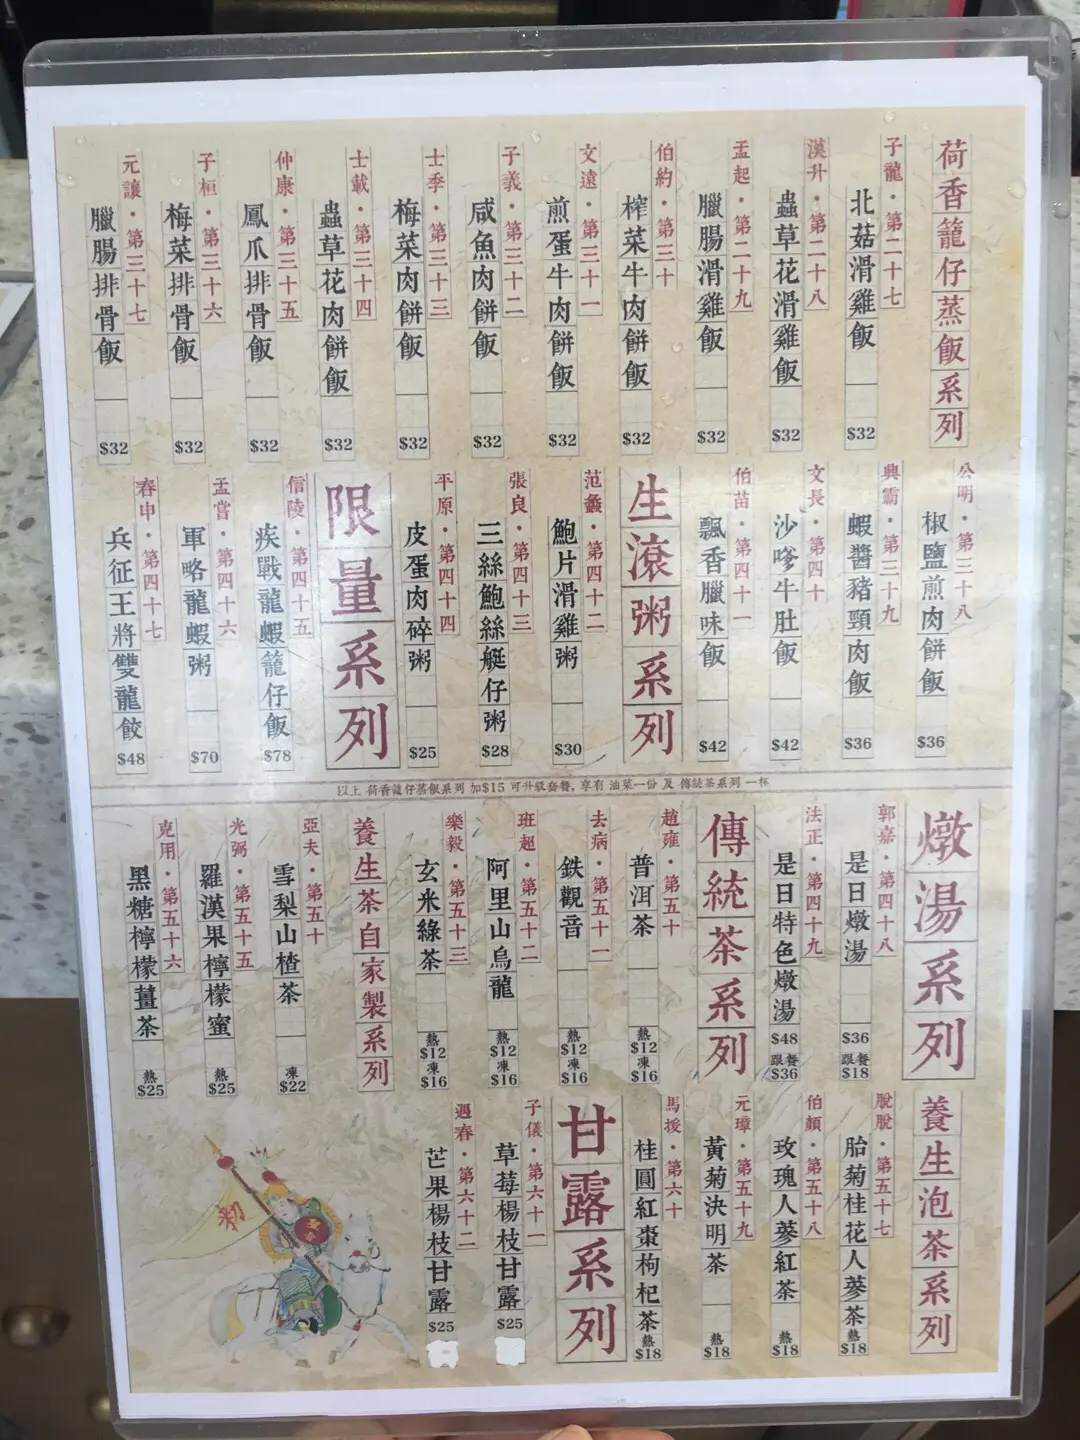 荷香籠仔蒸飯系列
子龍·第二十七
北菇滑雞飯 $32
漢升·第二十八
蟲草花滑雞飯 $32
孟起·第二十九
臘腸滑雞飯 $32
伯約·第三十
榨菜牛肉餅飯 $32
文遠·第三十一
煎蛋牛肉餅飯 $32
子義·第三十二
咸魚肉餅飯 $32
士季·第三十三
梅菜肉餅飯 $32
士載·第三十四
蟲草花肉餅飯 $32
仲康·第三十五
鳳爪排骨飯 $32
子桓·第三十六
梅菜排骨飯 $32
元讓·第三十七
臘腸排骨飯 $32
公明·第三十八
椒鹽煎肉餅飯 $36
興霸·第三十九
蝦醬豬頸肉飯 $36
文長·第四十
沙嗲牛肚飯 $42
伯苗·第四十一
飄香臘味飯 $42
生滾粥系列
范蠡·第四十二
鮑片滑雞粥 $30
張良·第四十三
三絲鮑絲艇仔粥 $28
平原·第四十四
皮蛋肉碎粥 $25
限量系列
信陵·第四十五
疾戰龍蝦籠仔飯 $78
孟嘗·第四十六
軍略龍蝦粥 $70
春申·第四十七
兵征王將雙龍餃 $48
以上 荷香籠仔蒸飯系列 加$15 可升級套餐, 享有 油菜一份 及 傳統茶系列 一杯
燉湯系列
郭嘉·第四十八
是日燉湯 $36 跟餐 $18
法正·第四十九
是日特色燉湯 $48 跟餐 $36
傳統茶系列
趙雍·第五十
普洱茶 熱 $12 凍 $16
去病·第五十一
鉄觀音 熱 $12 凍 $16
班超·第五十二
阿里山烏龍 熱 $12 凍 $16
樂毅·第五十三
玄米綠茶 熱 $12 凍 $16
養生茶自家製系列
亞夫·第五十
雪梨山楂茶 凍 $22
光弼·第五十五
羅漢果檸檬蜜 熱 $25
克用·第五十六
黑糖檸檬薑茶 熱 $25
養生泡茶系列
脫脫·第五十七
胎菊桂花人蔘茶 熱 $18
伯顏·第五十八
玫瑰人蔘紅茶 熱 $18
元璋·第五十九
黃菊決明茶 熱 $18
馬援·第六十
桂圓紅棗枸杞茶 熱 $18
甘露系列
子儀·第六十一
草莓楊枝甘露 $25
遇春·第六十二
芒果楊枝甘露 $25